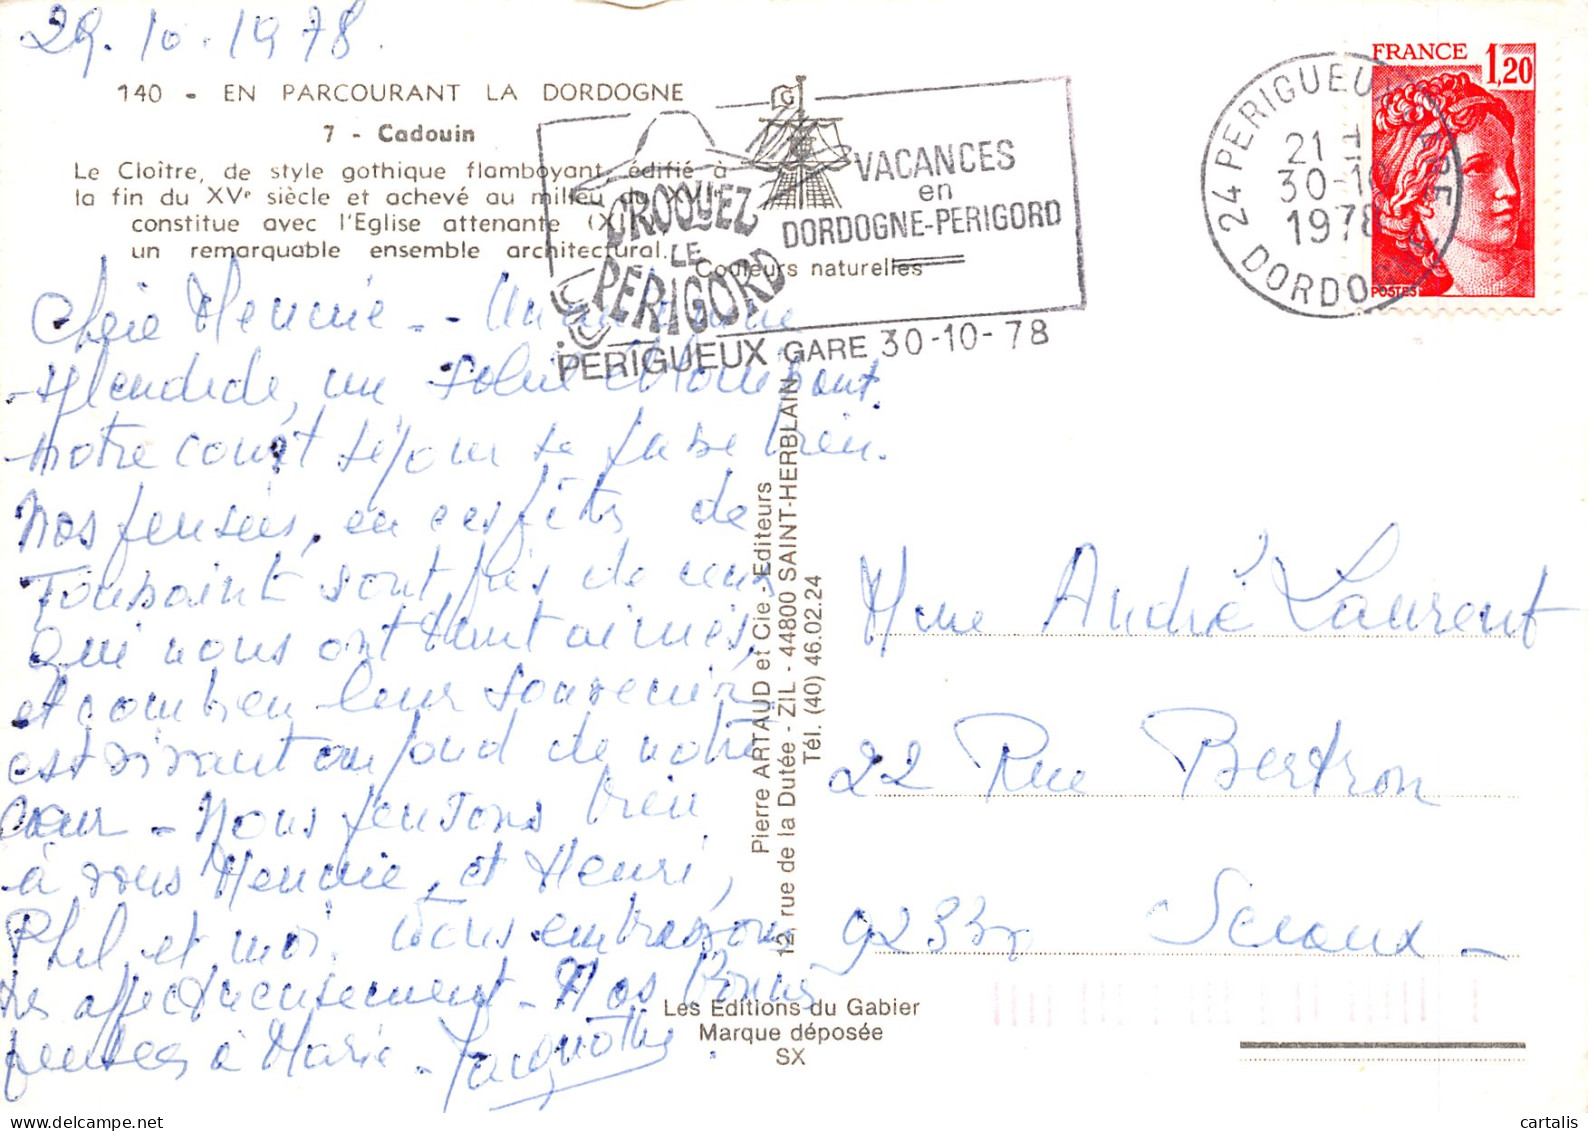 29.10.1978.
140 - EN PARCOURANT LA DORDOGNE
7 - Cadouin
Le Cloître, de style gothique flamboyant, édifié à
la fin du XVe siècle et achevé au milieu du XVIe
constitue avec l'Eglise attenante (X
un remarquable ensemble architectural.
Couleurs naturelles
CROQUEZ
LE
PERIGORD
VACANCES
en
DORDOGNE-PERIGORD
PERIGUEUX GARE 30-10-78
24 PERIGUEUX GARE
21 H
30-10
1978
DORDOGNE
FRANCE 1,20
POSTES
Chère Mennie - Un automne
splendide, un soleil éblouissant.
notre court séjour se passe bien.
Nos pensées, en ces fêtes de
Toussaint sont près de ceux
qui nous ont tant aimés,
et combien leur souvenir
est vivant au fond de notre
cœur - Nous pensons bien
à vous Mennie, et Henri,
Phil et moi. Vous embrassons
très affectueusement - Nos bonnes
pensées à Marie - Jacquotte
Pierre ARTAUD et Cie - Editeurs
12, rue de la Dutée - ZIL - 44800 SAINT-HERBLAIN
Tél. (40) 46.02.24
Les Editions du Gabier
Marque déposée
SX
Mme André Laurent
22 Rue Bertron
92330 Sceaux -
cartalis